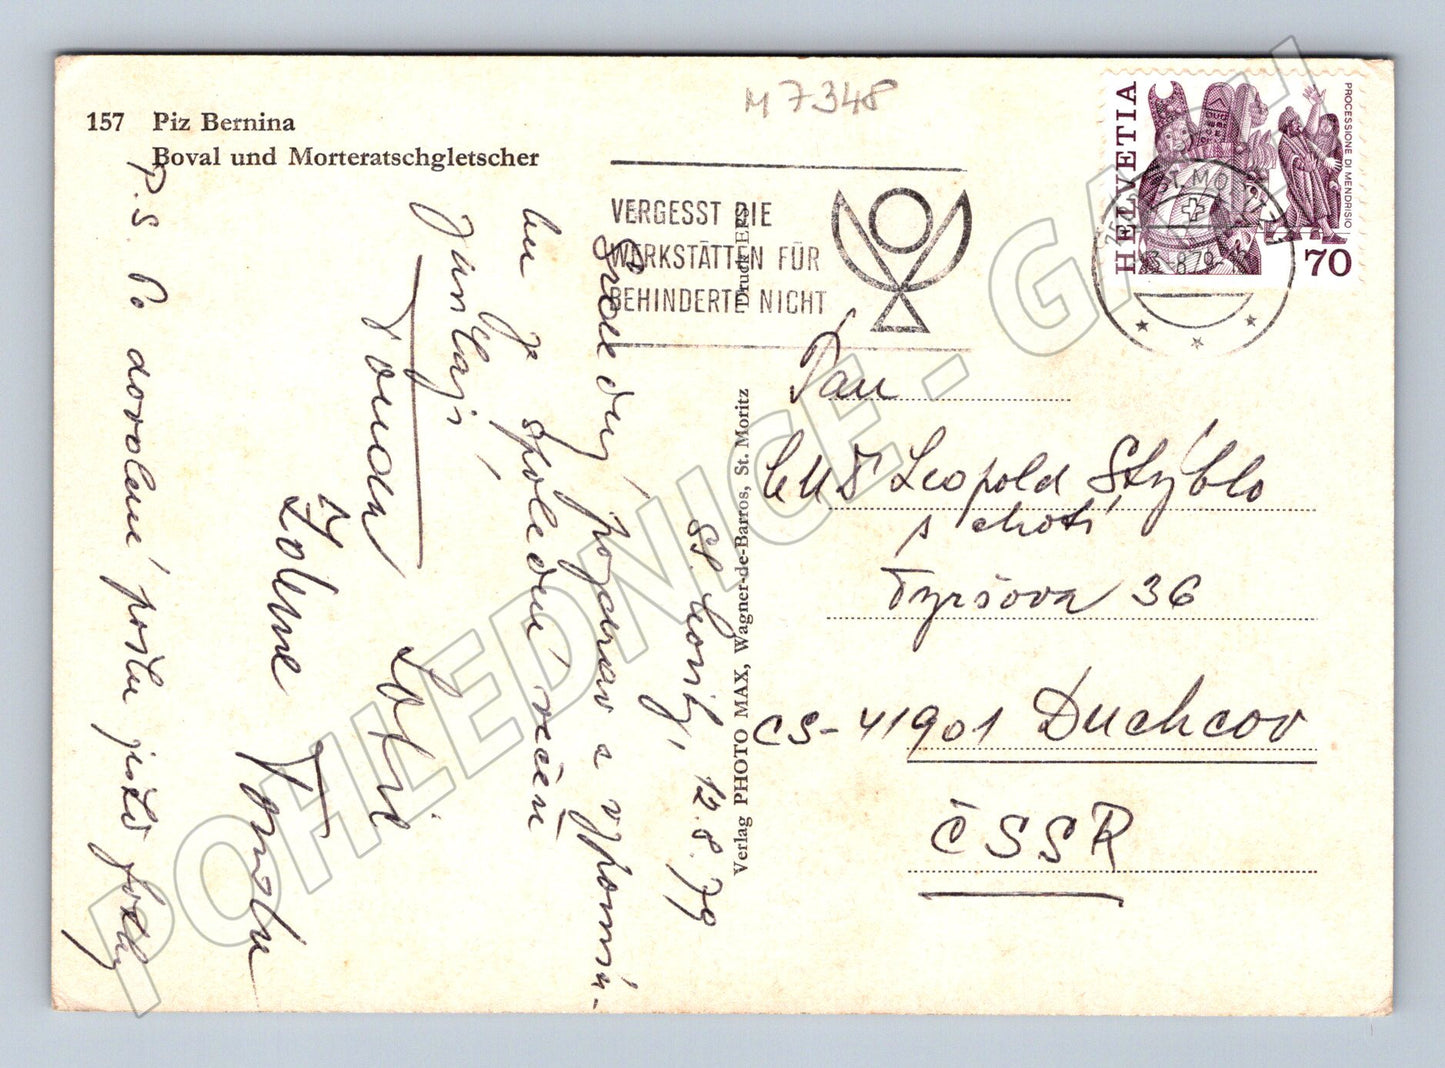 157 Piz Bernina
Boval und Morteratschgletscher
M 7348
VERGESST DIE
WERKSTÄTTEN FÜR
BEHINDERTE NICHT
HELVETIA
PROCESSIONE DI MENDRISIO
70
ST. MORITZ
Druck EPS
Verlag PHOTO MAX, Wagner-de-Barros, St. Moritz
St. Moritz, 12.8.79
Srdečný pozdrav a vzpomín-
ku
společné večeři
P.S. Po dovolené pošlu ještě fotky
Pan
Leopold Stýblo
s chotí
Tyršova 36
CS-41901 Duchcov
ČSSR
POHLEDNICE - GALY